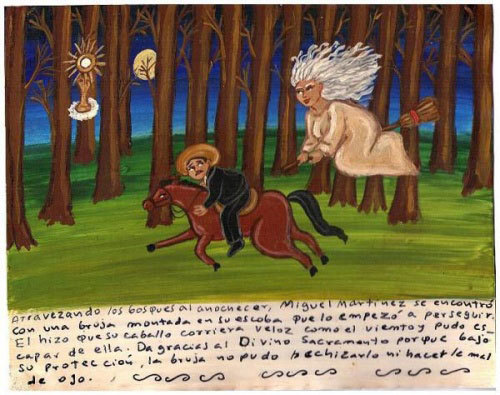 Atravezando los bosques al anochecer, Miguel Martinez se encontró
con una bruja montada en su escoba que lo empezó a perseguir.
El hizo que su caballo corriera veloz como el viento y pudo es
capar de ella. Da gracias al Divino Sacramento porque bajo
su protección, la bruja no pudo hechizarlo ni hacerle mal
de ojo.